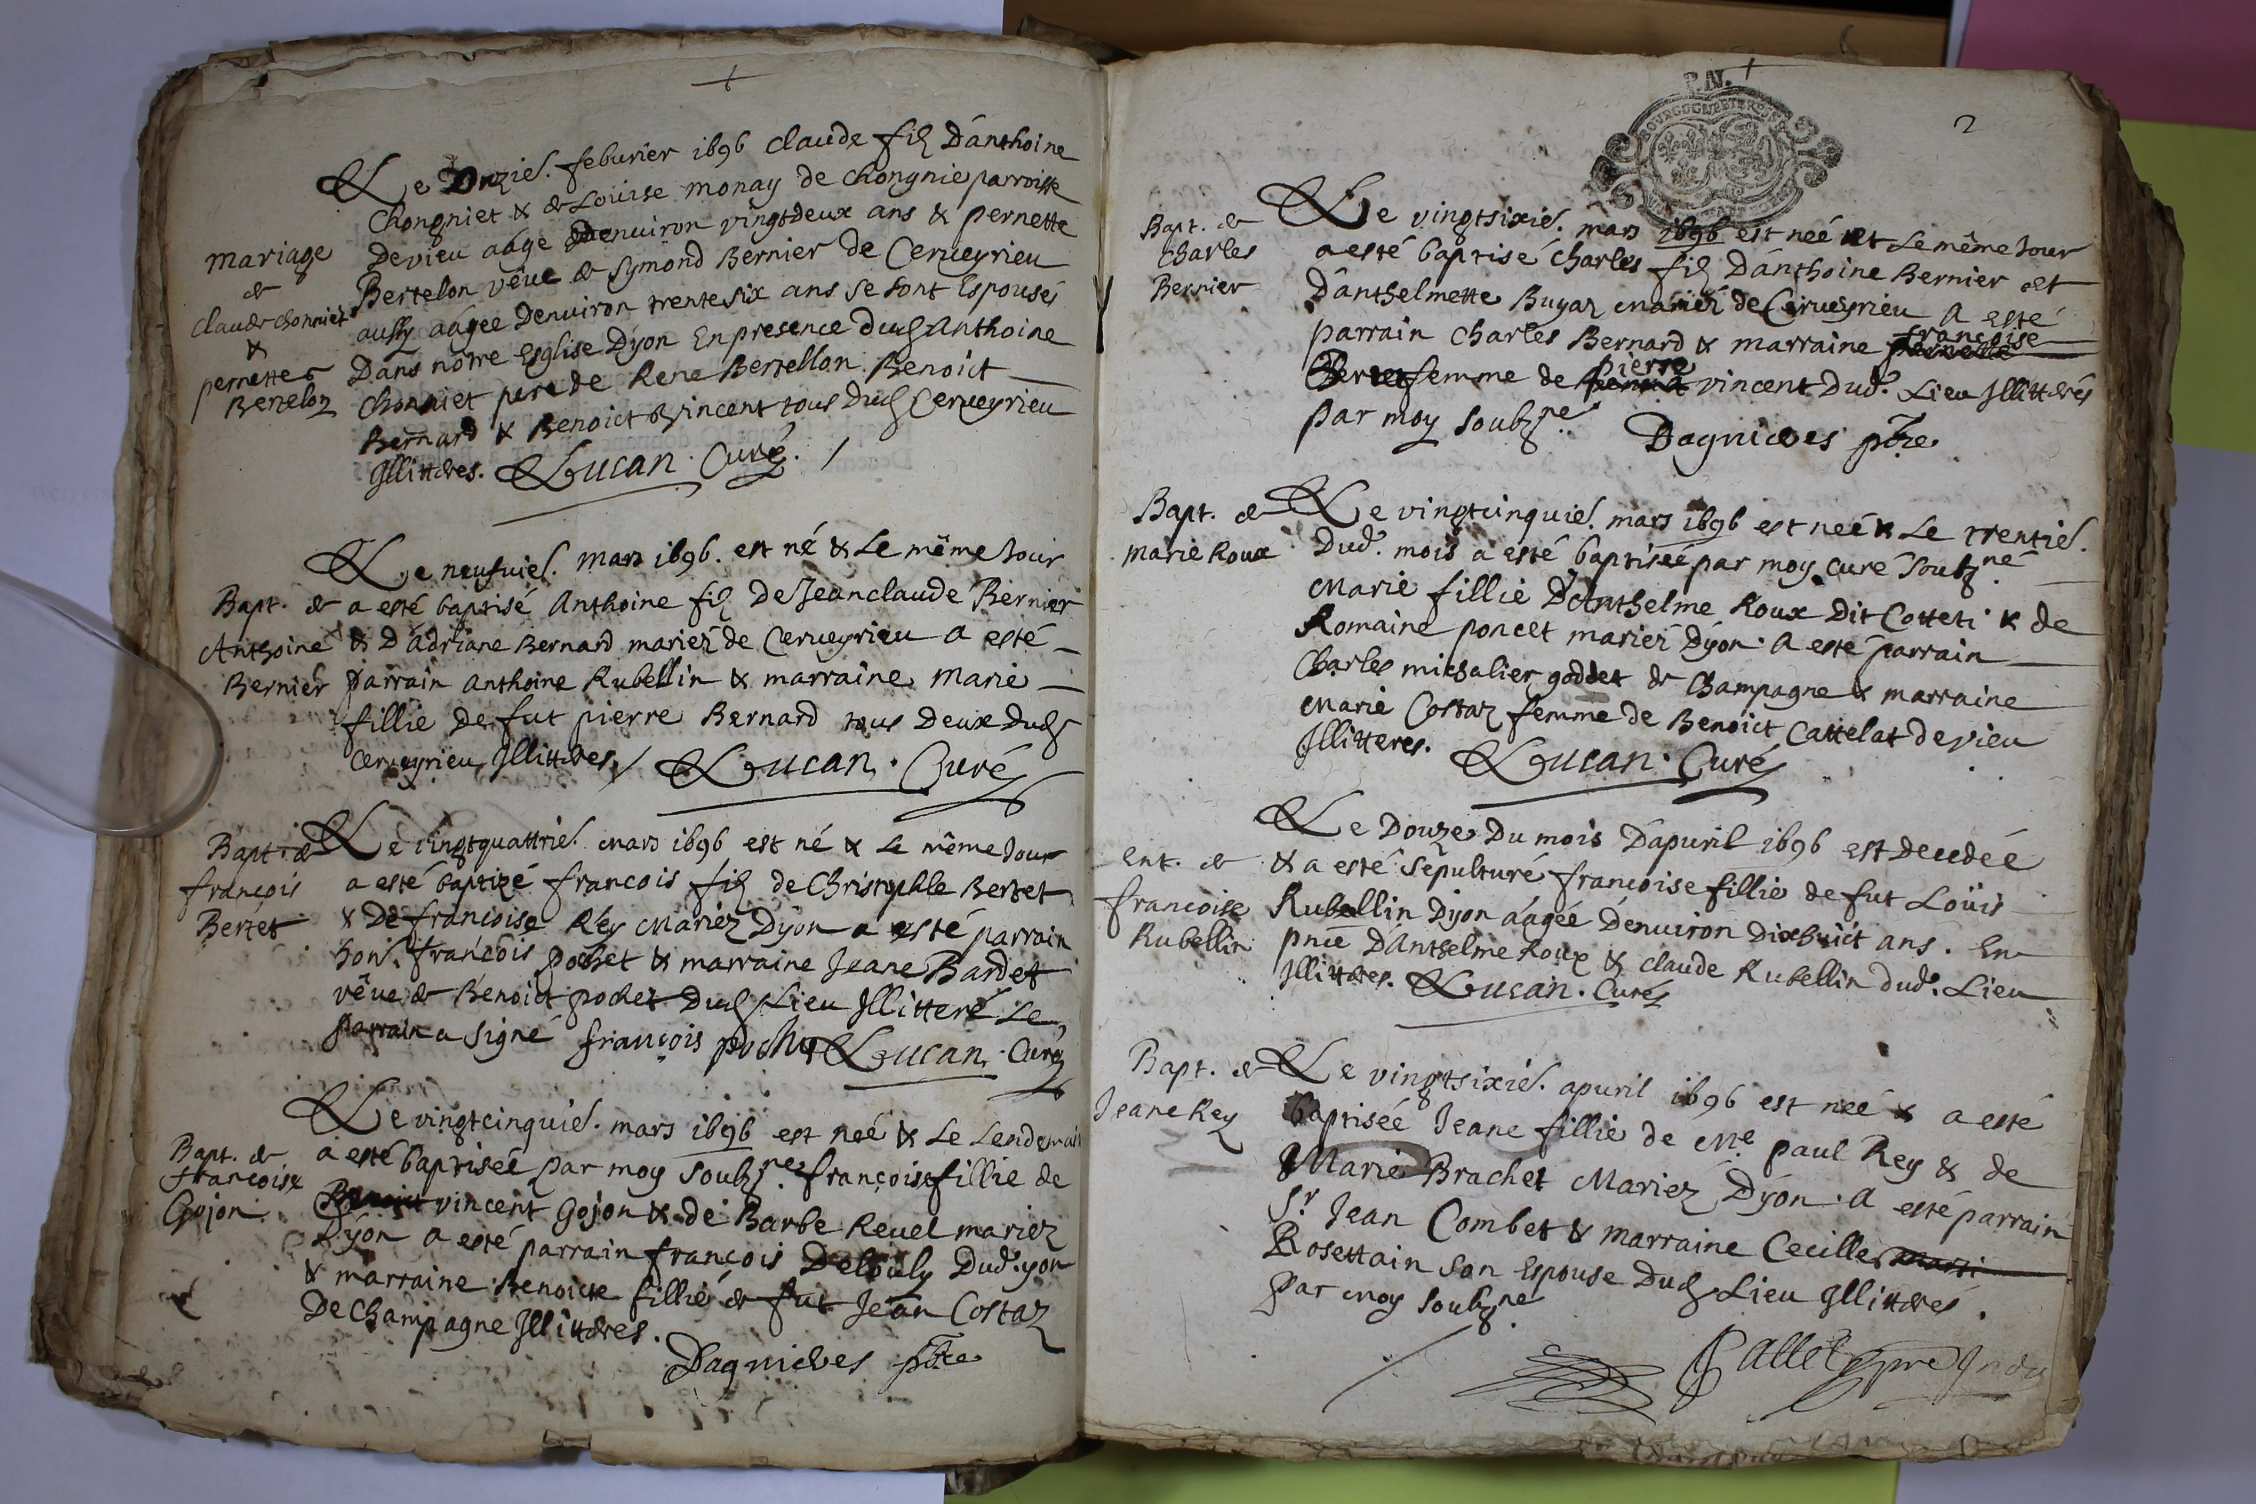 Le Onzies. feburier 1696 claude filz Danthoine
Chongniet & de Loüise monay de chongnie parroisse
Devieu aage Denuiron vingtdeux ans & pernette
Bertelon vêue de Symond Bernier de Cerueyrieu
aussy aâgee Denuiron trentesix ans se sont Espousés
Dans nôtre Esglise Dýon En presence dud. Anthoine
Chonniet pere de Rene Bertellon Benoict
Bernard & Benoict Vincent tous dud. Cerueyrieu
Illittéres. Lucan. Curé.
mariage
de
claude chonniet
&
pernette
Bertelon
Le neufuies. mars 1696. est né & Le même Jour
a esté baptisé Anthoine filz De Jeanclaude Bernier
& D'adriane Bernard mariéz de Cerueyrieu a esté
parrain anthoine Rubellin & marraine Marie
fillie de fut pierre Bernard tous Deux dud.
Cerueyrieu Illittéres. Lucan. Curé
Bapt. de
Anthoine
Bernier
Le vingtquattries. mars 1696 est né & Le même Jour
a esté baptizé francois filz de Christophle Bertet
& De francoise Rey Mariéz Dýon a esté parrain
hons. francois pochet & marraine Jeane Bardet
vêue de Benoict pochet Dud. Lieu Illitteré Le
parrain a signé françois pochet Lucan. Curé
Bapt. de
françois
Bertet
Le vingtcinquies. mars 1696 est neé & Le Lendemain
a esté baptiseé par moy soubz.né françoise fillie de
vincent Gojon & de Barbe Reuel mariez
Dýon a esté parrain françois Debouly Dud. yon
& marraine Benoicte fillié de fut Jean Costaz
De Champagne Illittéres.
Dagnieres ptre
Bapt. de
francoise
Gojon
2
P. N.
Le vingtsixies. mars 1696 est neé et Le même Jour
a esté baptisé charles filz Danthoine Bernier et
Danthelmette Bugaz mariéz de Cerueyrieu A esté
parrain charles Bernard & marraine francoise
femme de pierre vincent Dud. Lieu Illittérés
par moy soubz.né
Dagnieres ptre
Bapt. de
Charles
Bernier
Le vingtcinquies. mars 1696 est neé & Le trenties.
Dud. mois a esté baptiseé par moy Curé Soubz.né
Marie fillie D'Anthelme Roux Dit Cotteti & de
Romaine poncet mariéz Dýon. A esté parrain
Charles michalier goddet de Champagne & marraine
Marie Costaz femme de Benoict Cattelat devieu
Illitteres. Lucan. Curé
Bapt. de
marie Roux
Le Douze Du mois Dapuril 1696 est Decedée
& a esté sepulturé francoise fillie de fut Loüis
Rubellin Dýon aâgée Denuiron Dixhuict ans. En
pnce Danthelme Roux & claude Rubellin dud. Lieu
Illittéres. Lucan. Curé
Ent. de
francoise
Rubellin
Le vingtsixies. apuril 1696 est neé & a esté
baptisée Jeane fillie de Mre. paul Rey & de
Marie Brachet Mariez Dýon. A esté parrain
Sr Jean Combet & marraine Cecille
Rosettain son Espouse Dud. Lieu Illittérés.
par moy soubz.né
Bapt. de
Jeane Rey